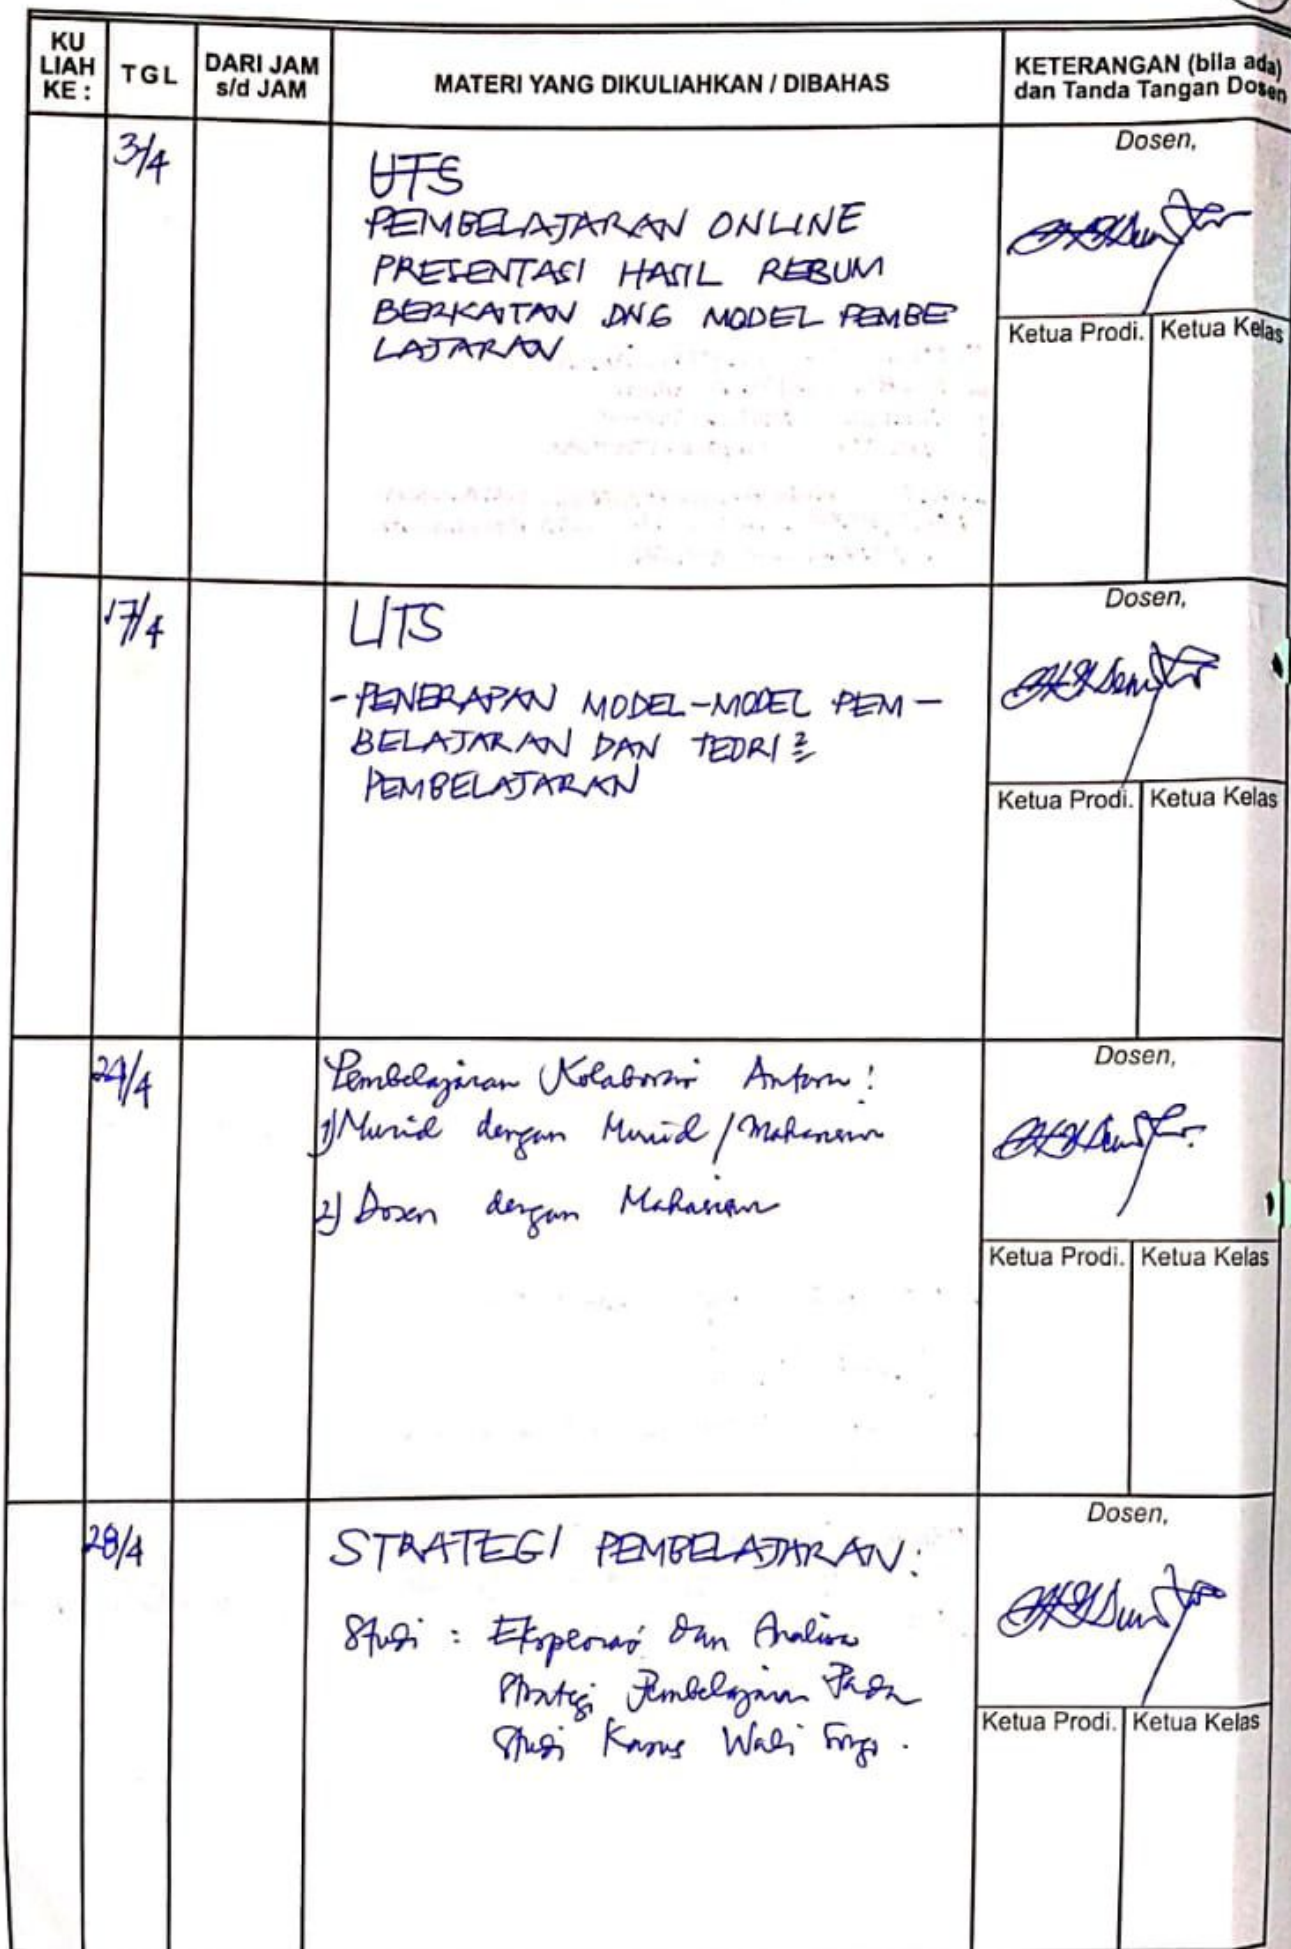 KU LIAH KE : TGL DARI JAM s/d JAM MATERI YANG DIKULIAHKAN / DIBAHAS KETERANGAN (bila ada) dan Tanda Tangan Dosen
3/4
UTS
PEMBELAJARAN ONLINE
PRESENTASI HASIL REBUM
BERKAITAN DNG MODEL PEMBE
LAJARAN
Dosen,
Ketua Prodi. Ketua Kelas
17/4
UTS
- PENERAPAN MODEL-MODEL PEM -
BELAJARAN DAN TEORI 2
PEMBELAJARAN
Dosen,
Ketua Prodi. Ketua Kelas
24/4
Pembelajaran Kolaborasi Antara :
1) Murid dengan Murid / Mahasiswa
2) Dosen dengan Mahasiswa
Dosen,
Ketua Prodi. Ketua Kelas
28/4
STRATEGI PEMBELAJARAN :
Studi : dan Analisa
Strategi Pembelajaran Pada
Studi Kasus Wali
Dosen,
Ketua Prodi. Ketua Kelas